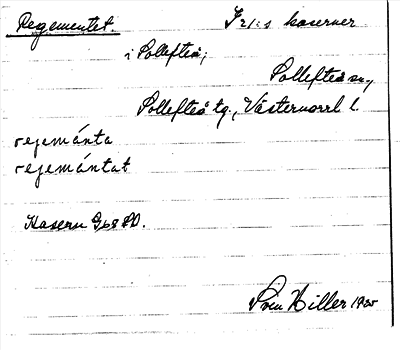 Regementet. I 21:s kaserner
i Sollefteå;
Sollefteå sn.,
Sollefteå tg., Västernorrl l.
rejemánta
rejemántat
Kasern G68 AD.
Sven Hiller 1935